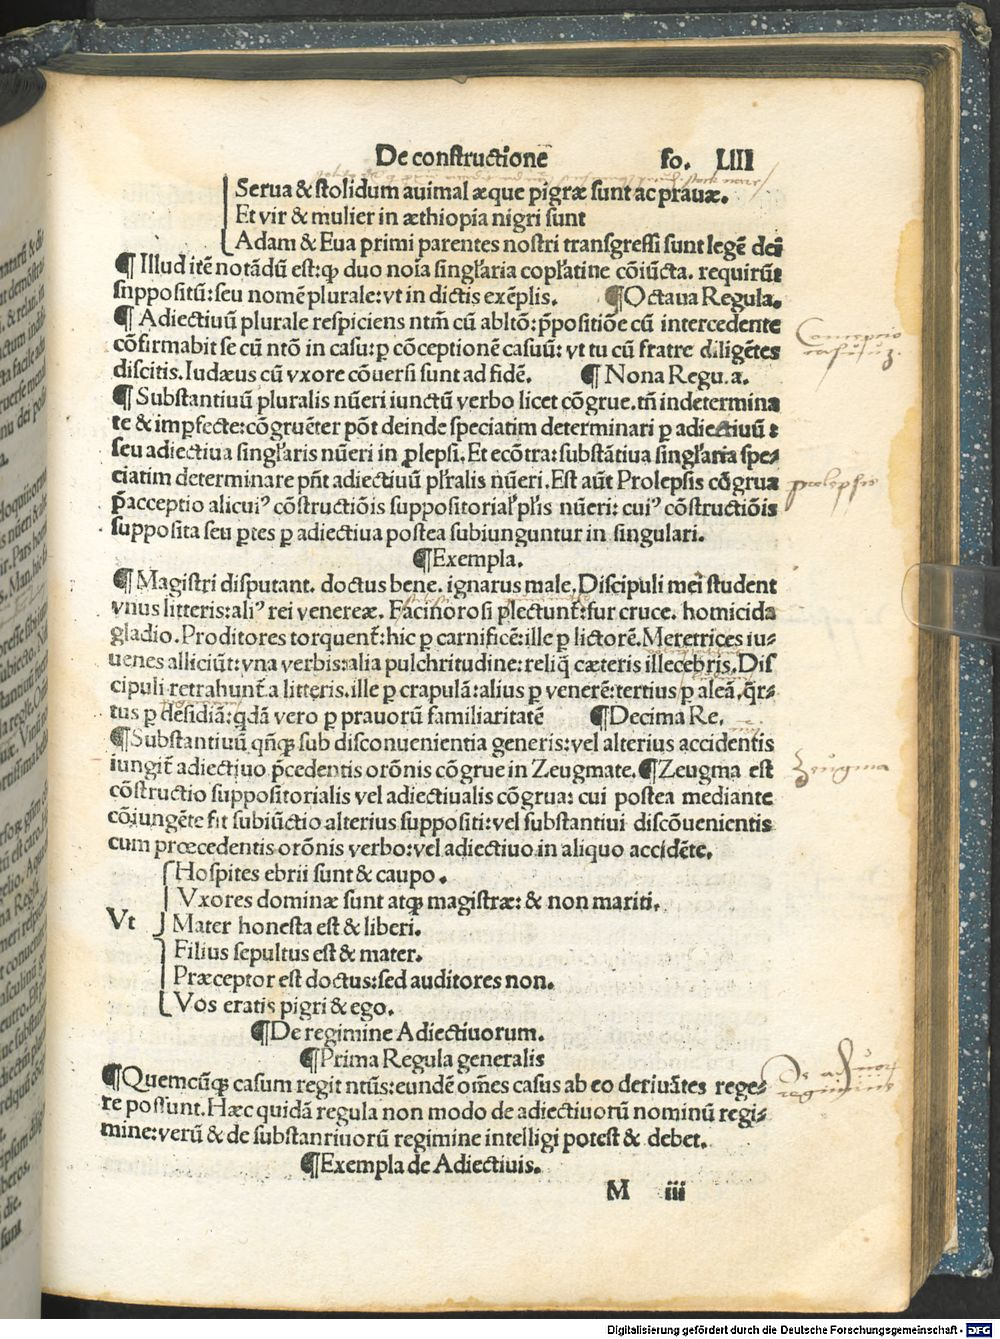 De constructione fo. LIII
Serua & stolidum auimal æque pigræ sunt ac prauæ.
Et vir & mulier in æthiopia nigri sunt
Adam & Eua primi parentes nostri transgressi sunt legē dei
¶ Illud itē notādū est: ꝙ duo noīa singl̄aria copl̄atiue cōiūcta. requirūt
suppositū: seu nomē plurale: vt in dictis exēplis. ¶Octaua Regula.
¶ Adiectiuū plurale respiciens ntm̄ cū abltō: p̄positiōe cū intercedente
cōfirmabit se cū ntō in casu: ꝑ cōceptionē casuū: vt tu cū fratre diligētes
discitis. Iudæus cū vxore cōuersi sunt ad fidē. ¶ Nona Regu.a.
¶ Substantiuū pluralis nūeri iunctū verbo licet cōgrue. tn̄ indetermina
te & imꝑfecte: cōgruēter pōt deinde speciatim determinari ꝑ adiectiuū:
seu adiectiua singl̄aris nūeri in ꝓlepsi. Et ecōtra: substātiua singl̄aria spe-
ciatim determinare pn̄t adiectiuū pl̄ralis nūeri. Est aūt Prolepsis cōgrua
p̄acceptio alicuiꝰ cōstructiōis suppositorial̄ pl̄is nūeri: cuiꝰ cōstructiōis
supposita seu ꝑtes ꝑ adiectiua postea subiunguntur in singulari.
¶Exempla.
¶ Magistri disputant. doctus bene. ignarus male. Discipuli mei student
vnus litteris: aliꝰ rei venereæ. Facinorosi plectunt̄: fur cruce. homicida
gladio. Proditores torquent̄: hic ꝑ carnificē: ille ꝑ lictorē. Meretrices iu-
uenes alliciūt: vna verbis: alia pulchritudine: reliq̄ cæteris illecebris. Dis
cipuli retrahunt̄ a litteris. ille ꝑ crapulā: alius ꝑ venerē: tertius ꝑ aleā. q̄r-
tus ꝑ desidiā: qdā vero ꝑ prauorū familiaritatē ¶Decima Re.
¶Substantiuū qn̄qꝫ sub disconuenientia generis: vel alterius accidentis
iungit̄ adiectiuo p̄cedentis orōnis cōgrue in Zeugmate. ¶Zeugma est
cōstructio suppositorialis vel adiectiualis cōgrua: cui postea mediante
cōiungēte fit subiūctio alterius suppositi: vel substantiui discōuenientis
cum præcedentis orōnis verbo: vel adiectiuo in aliquo accidēte.
Hospites ebrii sunt & caupo.
Vxores dominæ sunt atqꝫ magistræ: & non mariti.
Vt Mater honesta est & liberi.
Filius sepultus est & mater.
Præceptor est doctus: sed auditores non.
Vos eratis pigri & ego.
¶De regimine Adiectiuorum.
¶Prima Regula generalis
¶Quemcūqꝫ casum regit ntūs: eundē om̄es casus ab eo deriuātes rege-
re possunt. Hæc quidā regula non modo de adiectiuorū nominū regi-
mine: verū & de substanriuorū regimine intelligi potest & debet.
¶Exempla de Adiectiuis.
M iii
prolepsis
Zeugma
Digitalisierung gefördert durch die Deutsche Forschungsgemeinschaft - DFG